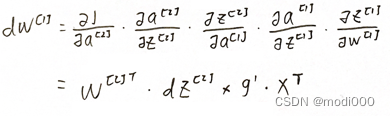 dW^[1] = ∂J/∂a^[2] · ∂a^[2]/∂z^[2] · ∂z^[2]/∂a^[1] · ∂a^[1]/∂z^[1] · ∂z^[1]/∂w^[1]
= W^[2]T · dZ^[2] * g' · X^T
CSDN @modi000